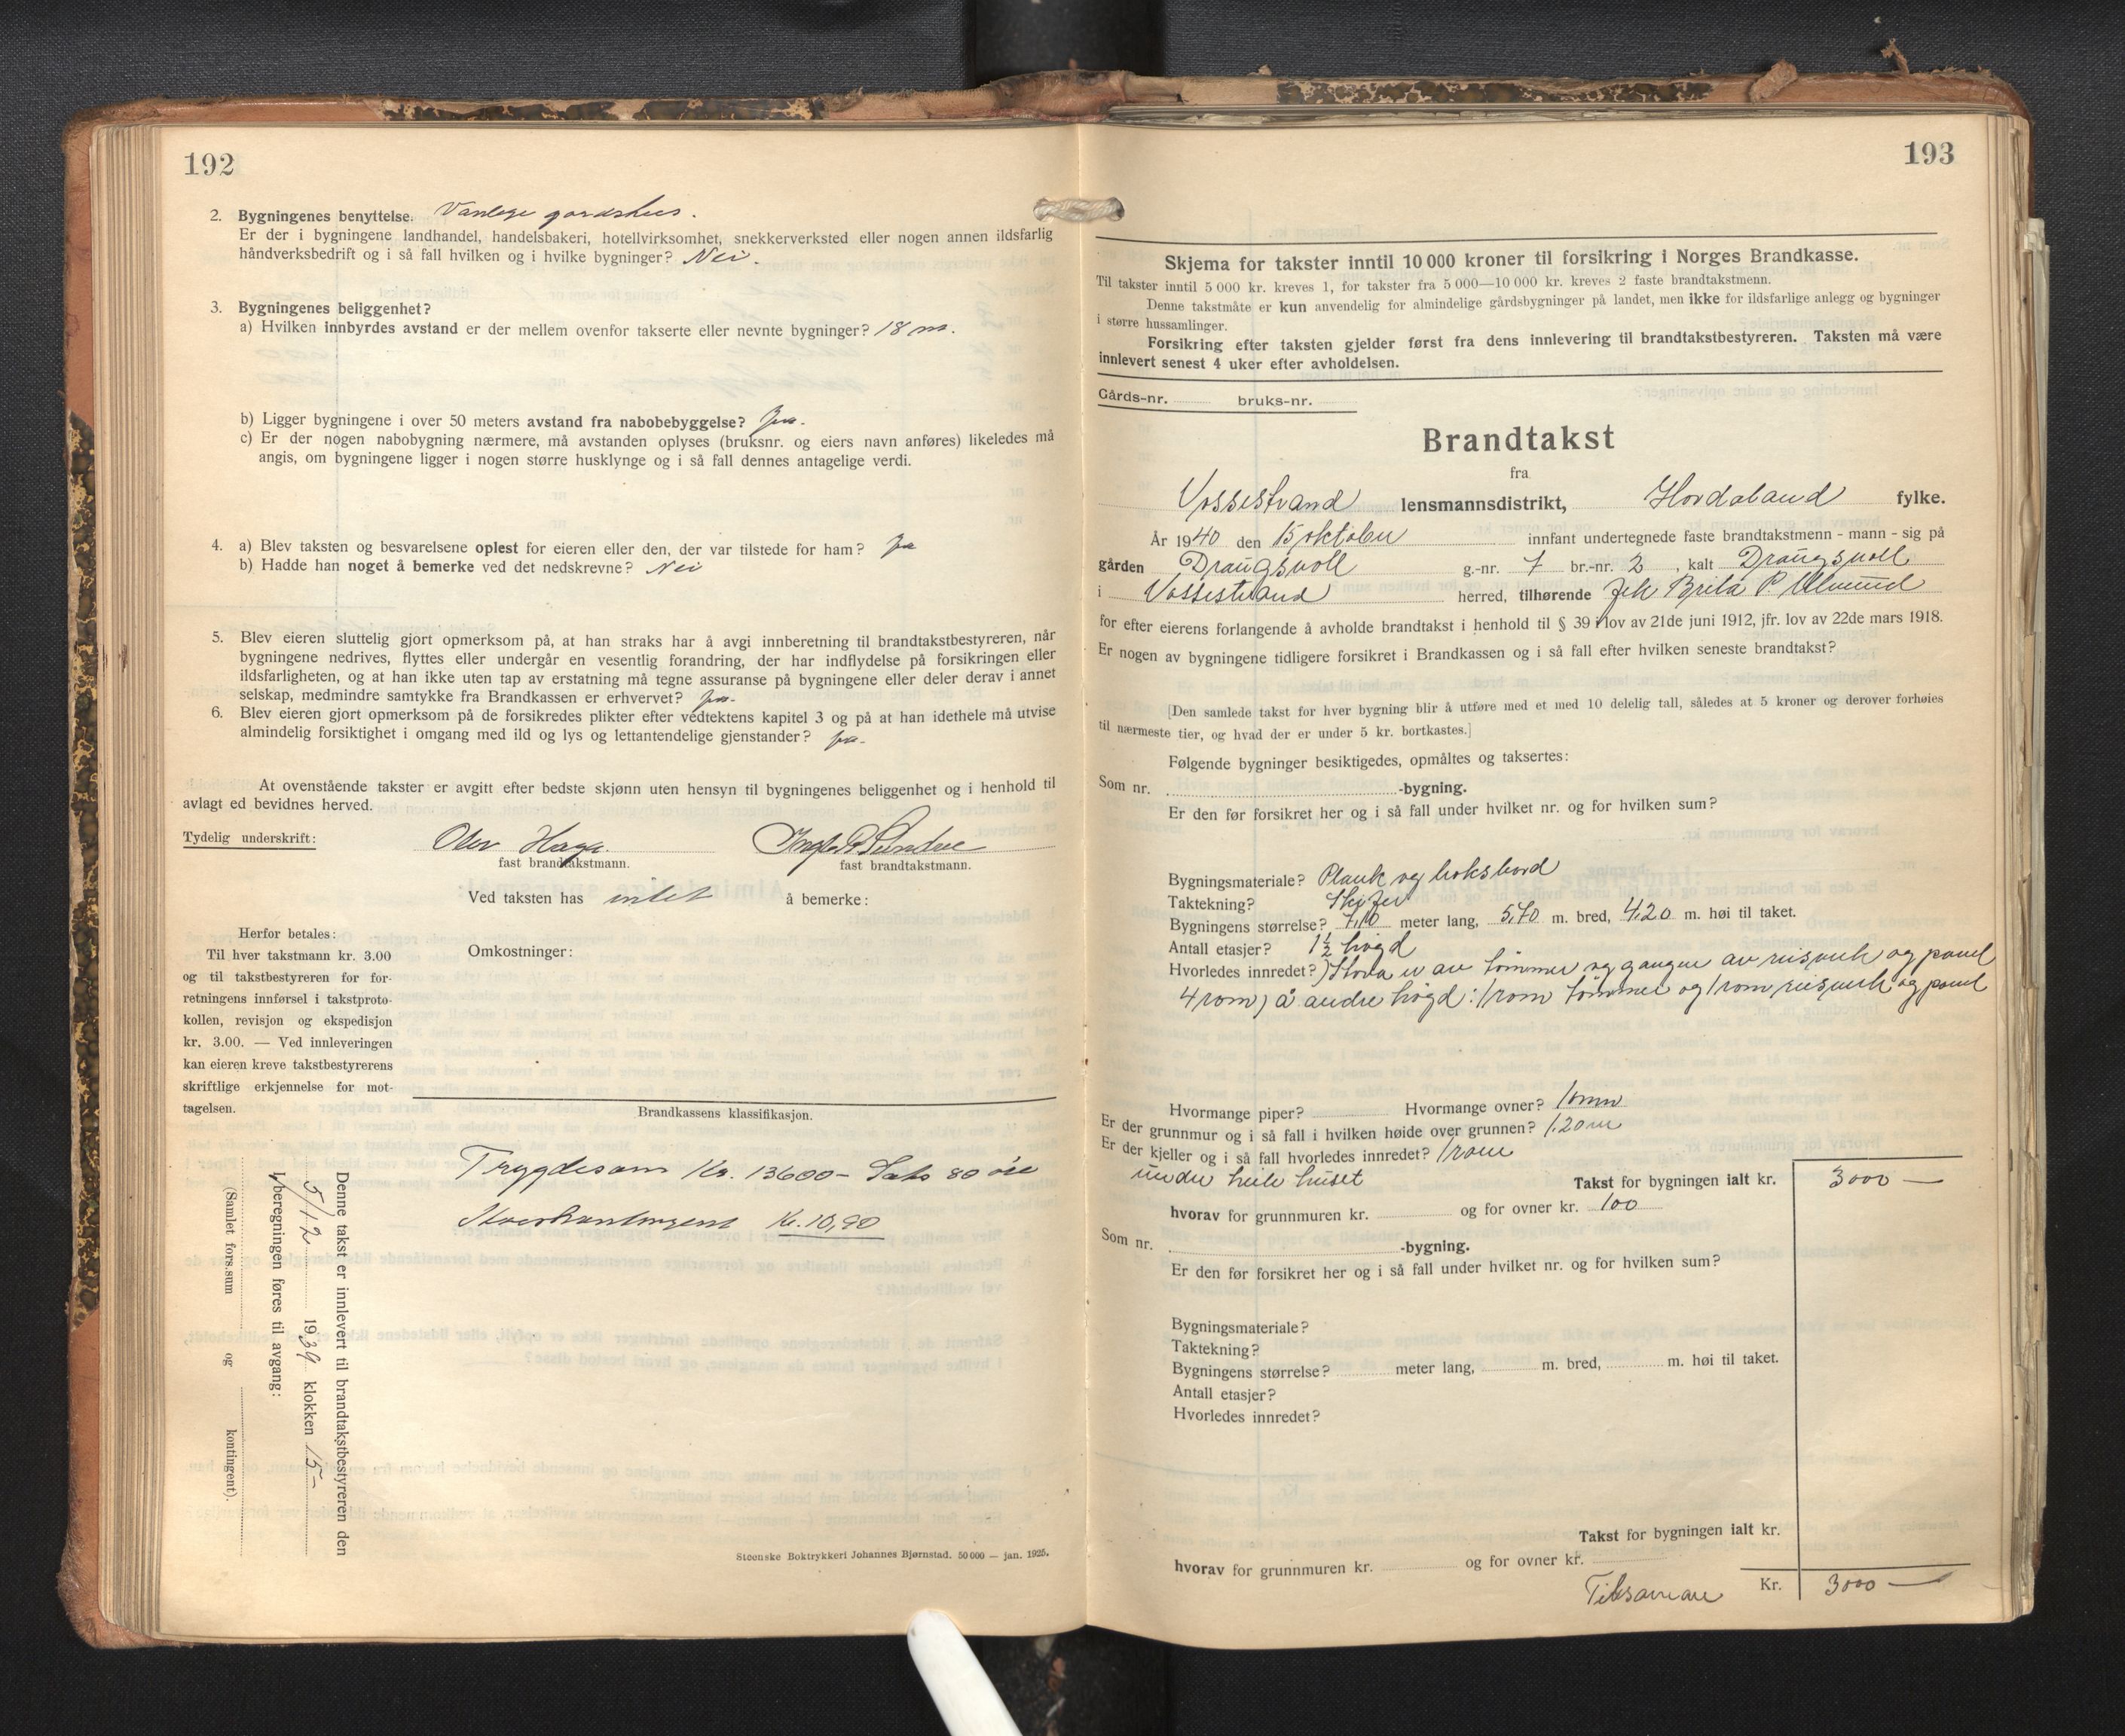 192
2. Bygningenes benyttelse. Vanlege gardshus.
Er der i bygningene landhandel, handelsbakeri, hotellvirksomhet, snekkerverksted eller nogen annen ildsfarlig
håndverksbedrift og i så fall hvilken og i hvilke bygninger? Nei.
3. Bygningenes beliggenhet?
a) Hvilken innbyrdes avstand er der mellem ovenfor takserte eller nevnte bygninger? 18 m.
b) Ligger bygningene i over 50 meters avstand fra nabobebyggelse? Ja.
c) Er der nogen nabobygning nærmere, må avstanden oplyses (bruksnr. og eiers navn anføres) likeledes må
angis, om bygningene ligger i nogen større husklynge og i så fall dennes antagelige verdi.
4. a) Blev taksten og besvarelsene oplest for eieren eller den, der var tilstede for ham? Ja
b) Hadde han noget å bemerke ved det nedskrevne? Nei
5. Blev eieren sluttelig gjort opmerksom på, at han straks har å avgi innberetning til brandtakstbestyreren, når
bygningene nedrives, flyttes eller undergår en vesentlig forandring, der har indflydelse på forsikringen eller
ildsfarligheten, og at han ikke uten tap av erstatning må tegne assuranse på bygningene eller deler derav i annet
selskap, medmindre samtykke fra Brandkassen er erhvervet? Ja.
6. Blev eieren gjort opmerksom på de forsikredes plikter efter vedtektens kapitel 3 og på at han idethele må utvise
almindelig forsiktighet i omgang med ild og lys og lettantendelige gjenstander? Ja.
At ovenstående takster er avgitt efter bedste skjønn uten hensyn til bygningenes beliggenhet og i henhold til
avlagt ed bevidnes herved.
Tydelig underskrift: Olav Haga. Sundve
fast brandtakstmann. fast brandtakstmann.
Ved taksten has intet å bemerke:
Herfor betales:
Til hver takstmann kr. 3.00
og til takstbestyreren for for-
retningens innførsel i takstproto-
kollen, revisjon og ekspedisjon
kr. 3.00. — Ved innleveringen
kan eieren kreve takstbestyrerens
skriftlige erkjennelse for mot-
tagelsen.
Omkostninger:
Brandkassens klassifikasjon.
Trygdesum Kr. 13600 – Sats 80 øre
Kr. 10,90
Denne takst er innlevert til brandtakstbestyreren den
5/12 1939 klokken 15-
I beregningen føres til avgang:
(Samlet fors.sum og kontingent).
Steenske Boktrykkeri Johannes Bjørnstad. 50 000 — jan. 1925.
193
Skjema for takster inntil 10 000 kroner til forsikring i Norges Brandkasse.
Til takster inntil 5 000 kr. kreves 1, for takster fra 5 000—10 000 kr. kreves 2 faste brandtakstmenn.
Denne takstmåte er kun anvendelig for almindelige gårdsbygninger på landet, men ikke for ildsfarlige anlegg og bygninger
i større hussamlinger.
Forsikring efter taksten gjelder først fra dens innlevering til brandtakstbestyreren. Taksten må være
innlevert senest 4 uker efter avholdelsen.
Gårds-nr. bruks-nr.
Brandtakst
fra
Vossestrand lensmannsdistrikt, Hordaland fylke.
År 1940 den 15 oktober innfant undertegnede faste brandtakstmenn - mann - sig på
gården Draugsvoll g.-nr. 7 br.-nr. 2, kalt Draugsvoll
i Vossestrand herred, tilhørende Brita P.
for efter eierens forlangende å avholde brandtakst i henhold til § 39 i lov av 21de juni 1912, jfr. lov av 22de mars 1918.
Er nogen av bygningene tidligere forsikret i Brandkassen og i så fall efter hvilken seneste brandtakst?
[Den samlede takst for hver bygning blir å utføre med et med 10 delelig tall, således at 5 kroner og derover forhøies
til nærmeste tier, og hvad der er under 5 kr. bortkastes.]
Følgende bygninger besiktigedes, opmåltes og taksertes:
Som nr. -bygning.
Er den før forsikret her og i så fall under hvilket nr. og for hvilken sum?
Bygningsmateriale? Plank og boksbord
Taktekning? Skifer
Bygningens størrelse? 7,10 meter lang, 5,70 m. bred, 4,20 m. høi til taket.
Antall etasjer? 1½ høgd
Hvorledes innredet? Stova er av tømmer og gangen av reisverk og panel
4 rom, å andre høgd: 1 rom tømmer og 1 rom reisverk og panel
Hvormange piper? Hvormange ovner? 1 omn
Er der grunnmur og i så fall i hvilken høide over grunnen? 1.20 m
Er der kjeller og i så fall hvorledes innredet? 1 rom
under heile huset Takst for bygningen ialt kr. 3000 —
hvorav for grunnmuren kr. og for ovner kr. 100
Som nr. -bygning.
Er den før forsikret her og i så fall under hvilket nr. og for hvilken sum?
Bygningsmateriale?
Taktekning?
Bygningens størrelse? meter lang, m. bred, m. høi til taket.
Antall etasjer?
Hvorledes innredet?
Takst for bygningen ialt kr.
hvorav for grunnmuren kr. og for ovner kr.
Tilsaman Kr. 3000 —